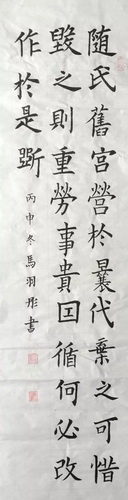 随氏舊宮營於曩代棄之可惜
毁之則重勞事貴囙循何必改
作於是斵
丙申冬馬羽彤書